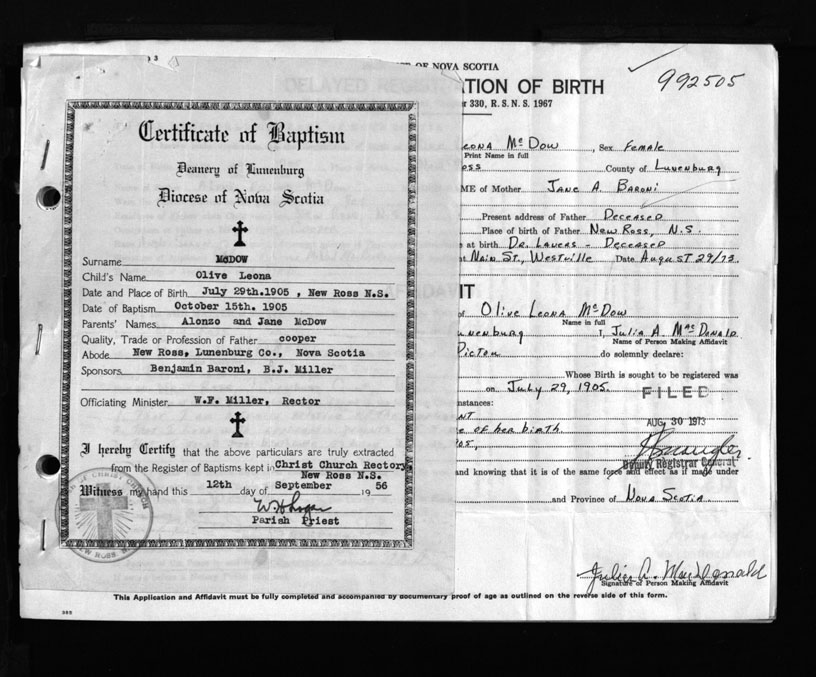 Certificate of Baptism
Deanery of Lunenburg
Diocese of Nova Scotia
Surname McDOW
Child's Name Olive Leona
Date and Place of Birth July 29th.1905 , New Ross N.S.
Date of Baptism October 15th. 1905
Parents' Names Alonzo and Jane McDow
Quality, Trade or Profession of Father cooper
Abode New Ross, Lunenburg Co., Nova Scotia
Sponsors Benjamin Baroni, B.J. Miller
Officiating Minister W.F. Miller, Rector
I hereby Certify that the above particulars are truly extracted
from the Register of Baptisms kept in Christ Church Rectory,
New Ross N.S.
Witness my hand this 12th day of September 19 56
Parish Priest
OF NOVA SCOTIA
992505
TION OF BIRTH
330, R.S.N.S. 1967
EONA McDOW , Sex Female
Print Name in full
oss County of Lunenburg
ME of Mother JANE A. BARONI
Present address of Father DECEASED
Place of birth of Father NEW ROSS, N.S.
at birth DR. LAVERS - DECEASED
MAIN ST., WESTVILLE Date AUGUST 29/73.
IT
of OLIVE LEONA McDOW
Name in full
unenburg I, JULIA A. MacDONALD
Name of Person Making Affidavit
Picton do solemnly declare:
Whose Birth is sought to be registered was
on JULY 29, 1905.
FILED
nstances:
AUG 30 1973
NT
e of her birth.
Deputy Registrar General
and knowing that it is of the same force and effect as if made under
and Province of NOVA SCOTIA
Julia A. MacDonald
Signature of Person Making Affidavit
This Application and Affidavit must be fully completed and accompanied by documentary proof of age as outlined on the reverse side of this form.